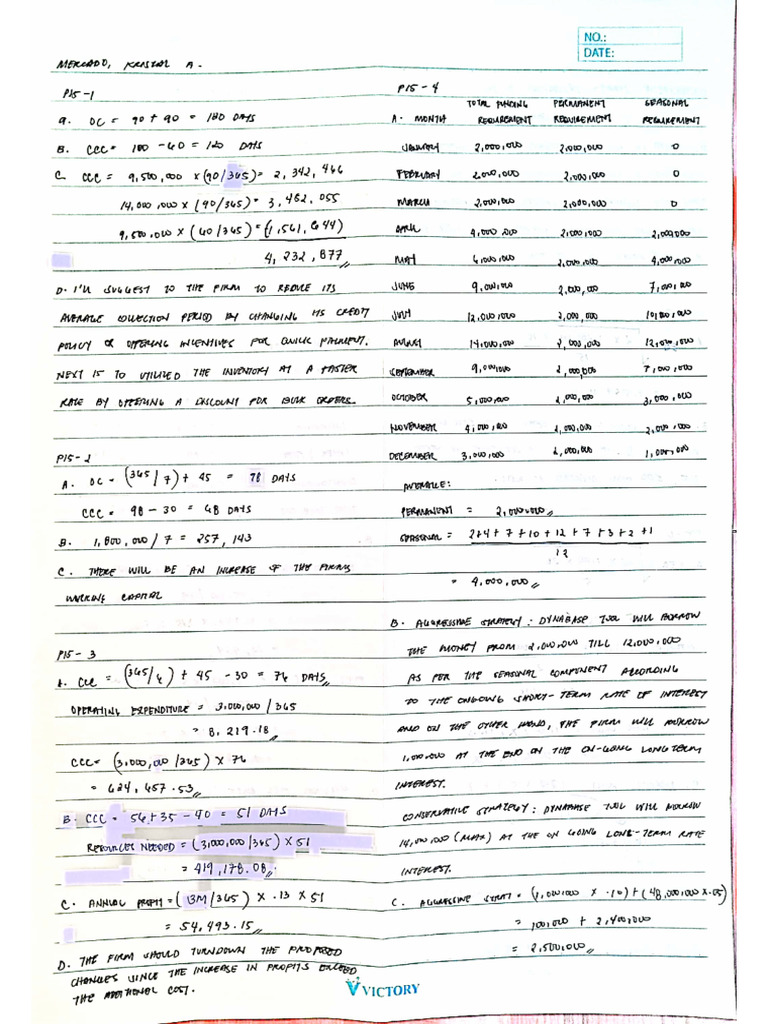 NO.:
DATE:
MERCADO, KRISTAL A.
P15-1
a. OC = 90 + 90 = 180 DAYS
B. CCC = 180 - 60 = 120 DAYS
C. CCC = 9,500,000 x (90/365) = 2,342,466
14,000,000 x (90/365) = 3,452,055
9,500,000 x (60/365) = (1,561,644)
4,232,877
D. I'LL SUGGEST TO THE FIRM TO REDUCE ITS
AVERAGE COLLECTION PERIOD BY CHANGING ITS CREDIT
POLICY OR OFFERING INCENTIVES FOR QUICK PAYMENT.
NEXT IS TO UTILIZED THE INVENTORY AT A FASTER
RATE BY OFFERING A DISCOUNT FOR BULK ORDERS.
P15-2
A. OC = (365/7) + 45 = 98 DAYS
CCC = 98 - 30 = 68 DAYS
B. 1,800,000/7 = 257,143
C. THERE WILL BE AN INCREASE IF THE FIRMS
WORKING CAPITAL
P15-3
A. CCC = (365/6) + 45 - 30 = 76 DAYS
OPERATING EXPENDITURE = 3,000,000/365
= 8,219.18
CCC = (3,000,000/365) x 76
= 624,657.53
B. CCC = 56 + 35 - 40 = 51 DAYS
RESOURCES NEEDED = (3,000,000/365) x 51
= 419,178.08
C. ANNUAL PROFIT = (3M/365) x .13 x 51
= 54,493.15
D. THE FIRM SHOULD TURNDOWN THE PROPOSED
CHANGES SINCE THE INCREASE IN PROFITS EXCEED
THE ADDITIONAL COST.
P15-4
TOTAL FUNDING PERMANENT SEASONAL
A. MONTH REQUIREMENT REQUIREMENT REQUIREMENT
JANUARY 2,000,000 2,000,000 0
FEBRUARY 2,000,000 2,000,000 0
MARCH 2,000,000 2,000,000 0
APRIL 4,000,000 2,000,000 2,000,000
MAY 6,000,000 2,000,000 4,000,000
JUNE 9,000,000 2,000,00 7,000,00
JULY 12,000,000 2,000,000 10,000,000
AUGUST 14,000,000 2,000,000 12,000,000
SEPTEMBER 9,000,000 2,000,000 7,000,000
OCTOBER 5,000,000 2,000,000 3,000,000
NOVEMBER 4,000,000 2,000,000 2,000,000
DECEMBER 3,000,000 2,000,000 1,000,000
AVERAGE:
PERMANENT = 2,000,000
SEASONAL = 2+4+7+10+12+7+3+2+1
12
= 4,000,000
B. AGGRESSIVE STRATEGY: DYNABASE TOOL WILL BORROW
THE MONEY FROM 2,000,000 TILL 12,000,000
AS PER THE SEASONAL COMPONENT ACCORDING
TO THE ONGOING SHORT-TERM RATE OF INTEREST
AND ON THE OTHER HAND, THE FIRM WILL BORROW
1,000,000 AT THE END ON THE ON-GOING LONG TERM
INTEREST.
CONSERVATIVE STRATEGY: DYNABASE TOOL WILL BORROW
14,000,000 (MAX) AT THE ON GOING LONG-TERM RATE
INTEREST.
C. AGGRESSIVE STRAT = (1,000,000 x .10) + (48,000,000 x .05)
= 100,000 + 2,400,000
= 2,500,000
VICTORY